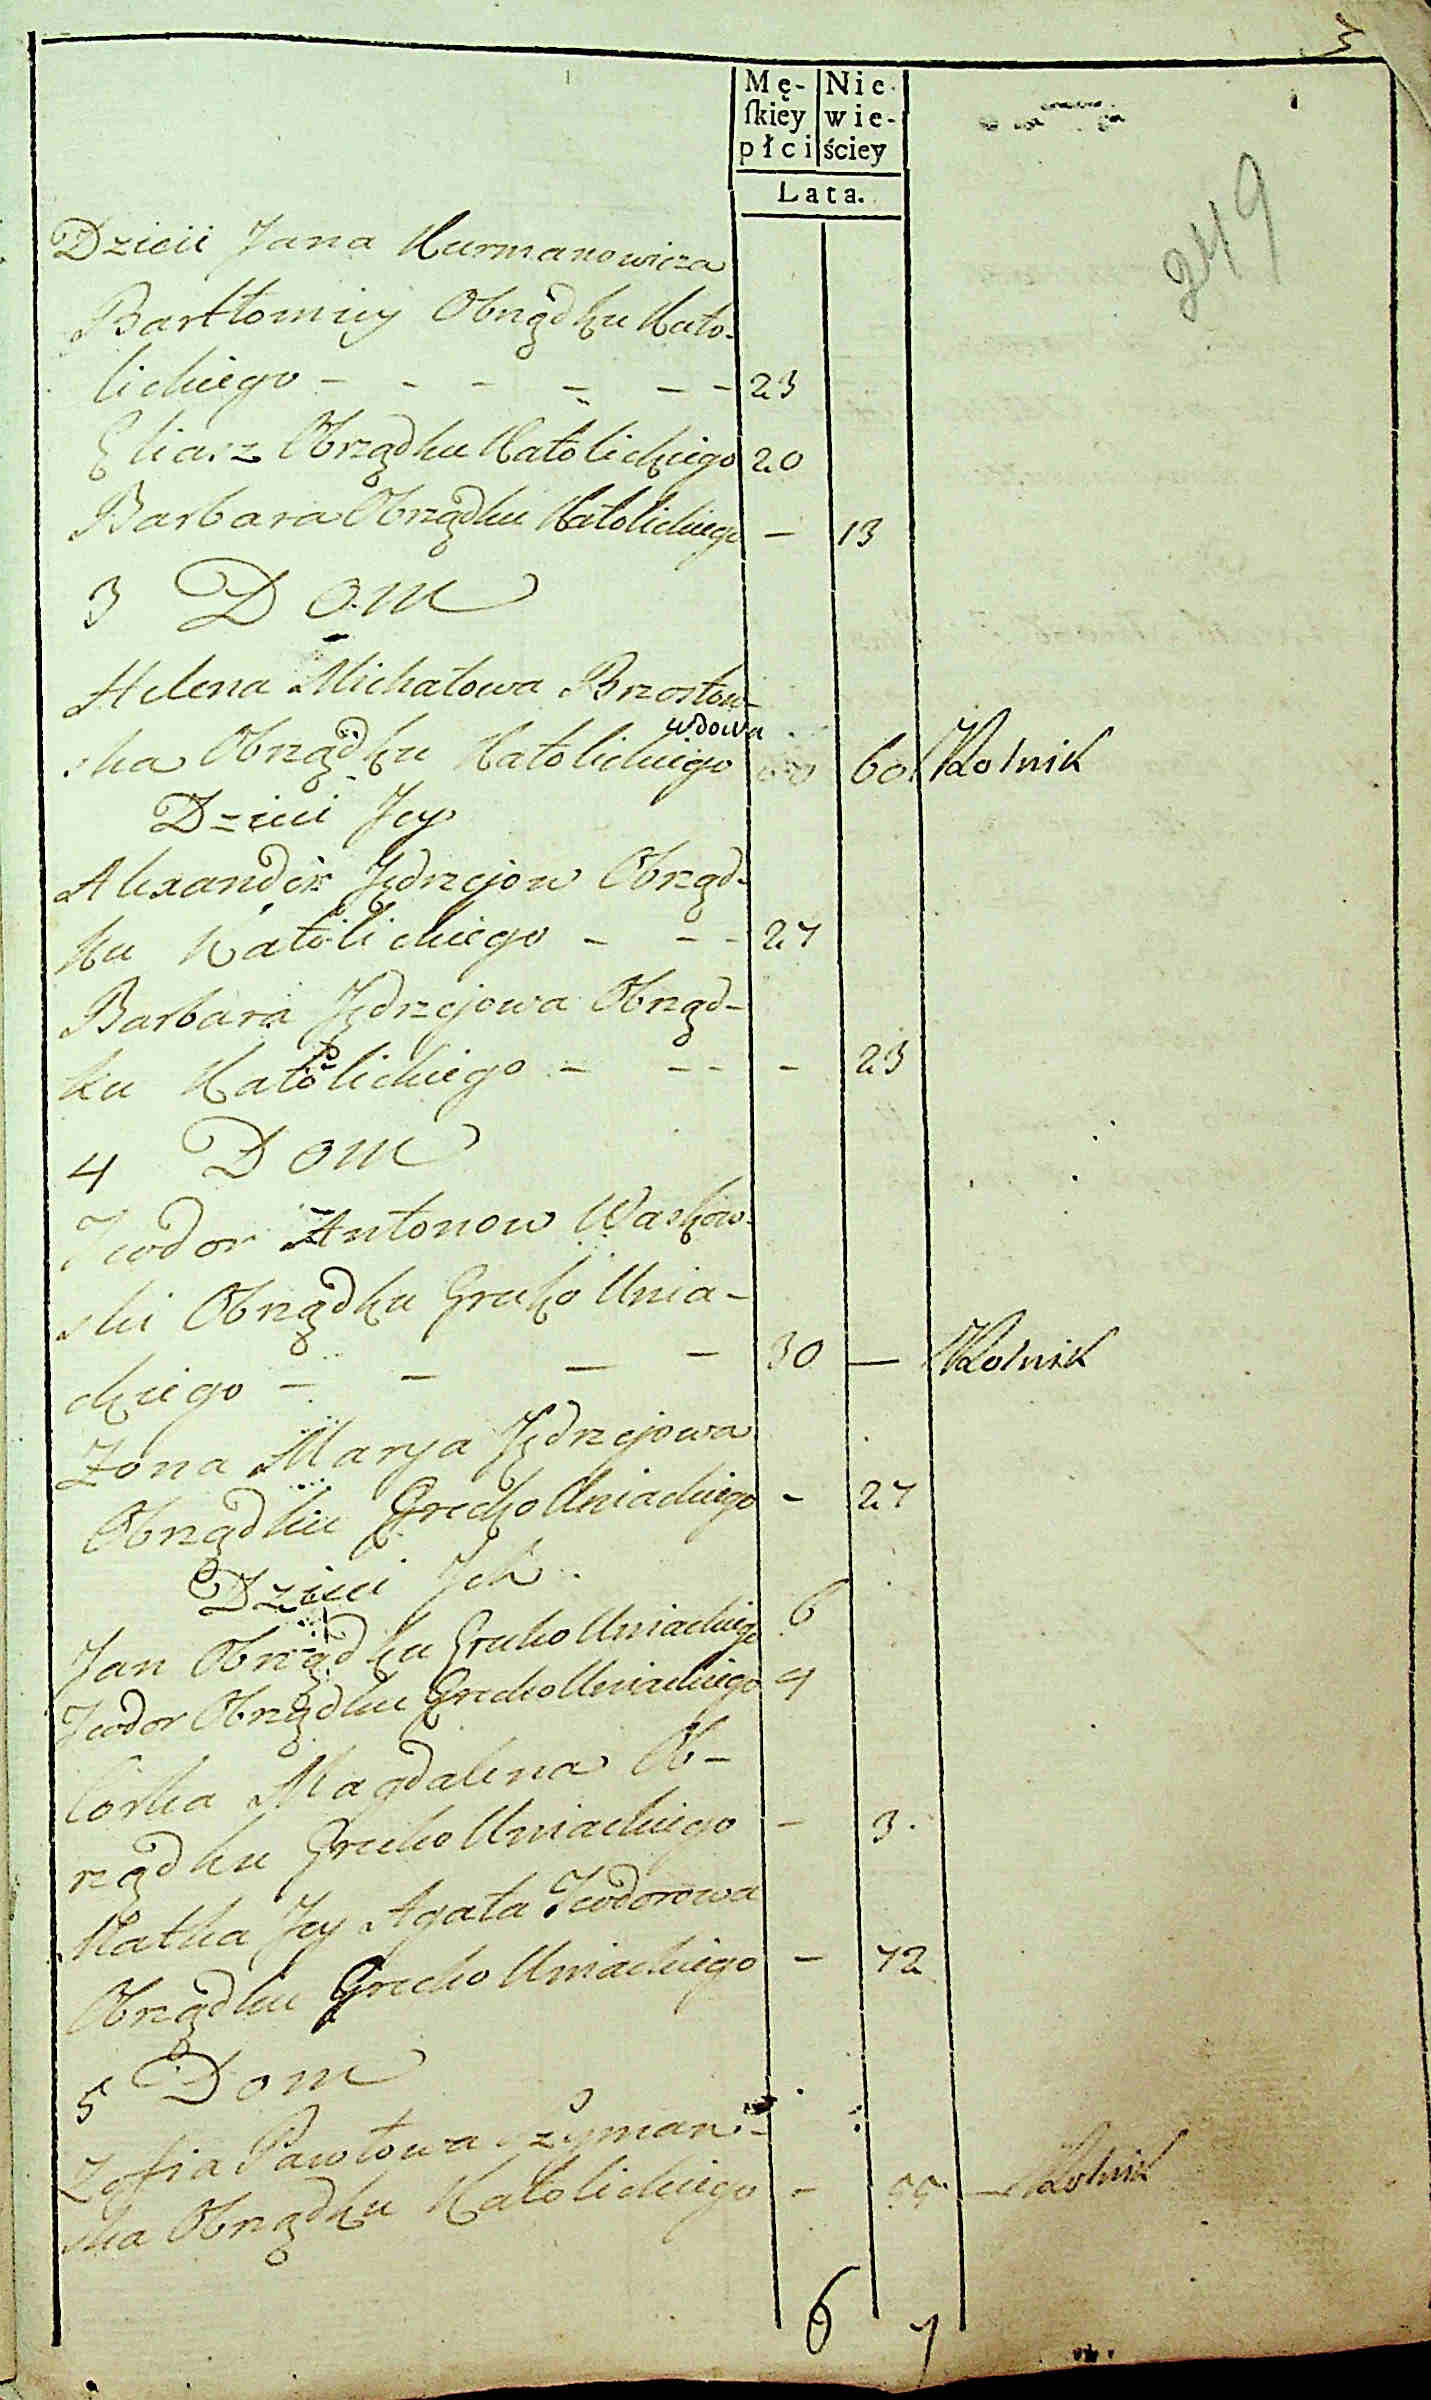 3
Mę- Nie
ſkiey wie-
płci ściey
Lata.
249
Dzieci Jana Kurmanowicza
Bartłomiey Obrządku Kato-
lickiego - - - - - - 23
Eliasz Obrządku Katolickiego 20
Barbara Obrządku Katolickiego - 13
3 Dom
Helena Michałowa Brzostow-
wdowa
ska Obrządku Katolickiego 60 Rolnik
Dzieci Jey
Alexander Jędrzejow Obrząd-
ku Katolickiego - - - 27
Barbara Jędrzejowa Obrząd-
ku Katolickiego - - - - 23
4 Dom
Teodor Antonow Waśkow-
ski Obrządku Grecko Unia-
ckiego - - - - 30 — Rolnik
Zona Marya Jędrzejowa
Obrządku Grecko Uniackiego - 27
Dzieci Ich
Jan Obrządku Grecko Uniackiego 6
Teodor Obrządku Grecko Uniackiego 4
Corka Magdalena Ob-
rządku Grecko Uniackiego - 3.
Matka Jey Agata Teodorowa
Obrządku Grecko Uniackiego - 72
5 Dom
Zofia Pawłowa Szyman-
ska Obrządku Katolickiego - 55 — Rolnik
6 7